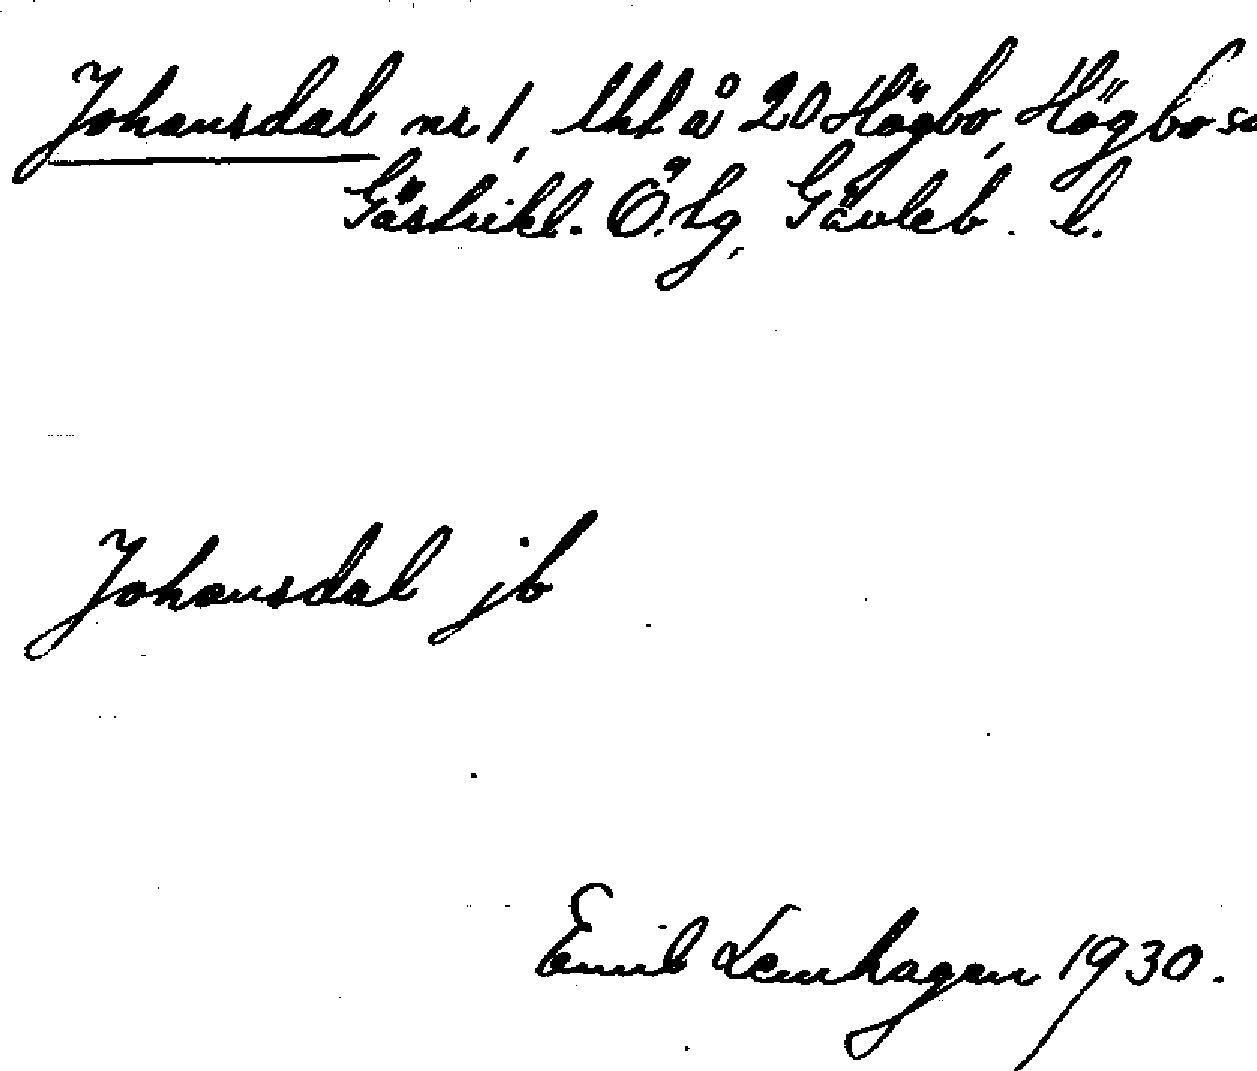 Johansdal nr 1, lht å 20 Högbo, Högbo sn
Gästrikl. Ö. tg, Gävleb. l.
Johansdal jb
Emil Lenhagen 1930.